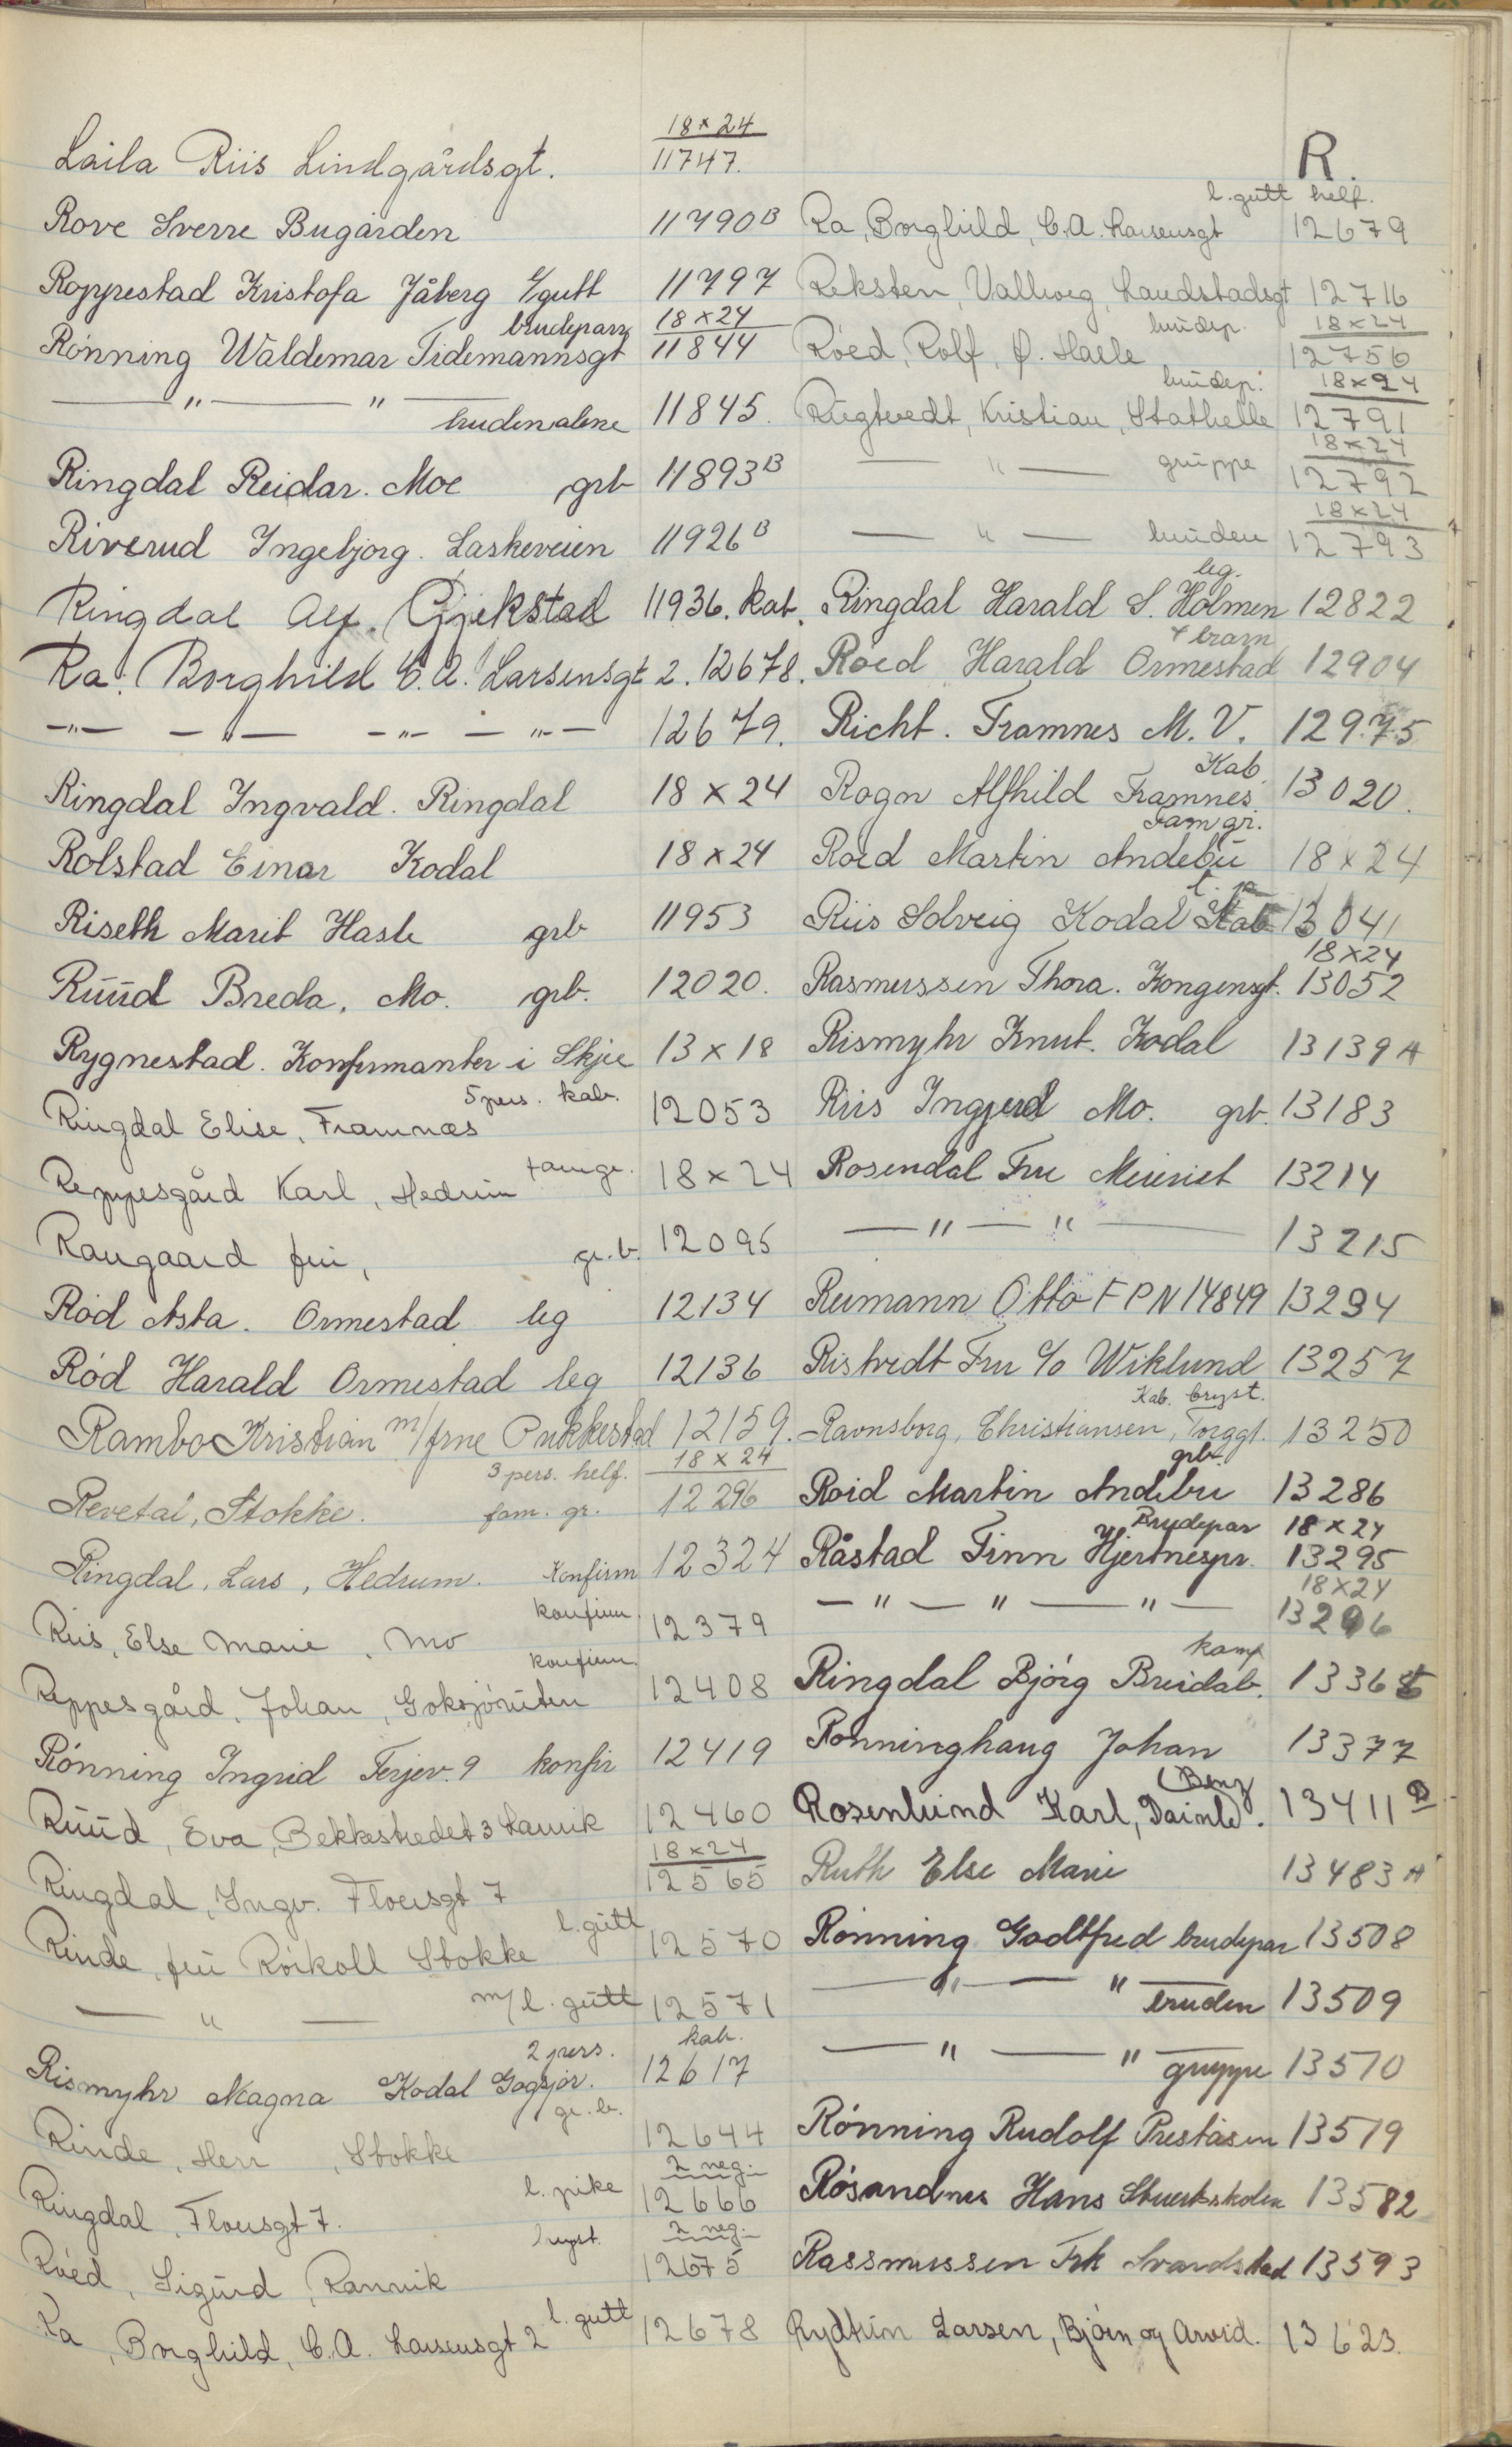 R.
18×24
Laila Riis Lindgårdsgt. 11747.
Rove Sverre Bugården 11790B
Roppestad Kristofa Jåberg l/gutt 11797
brudepar 18×24
Rønning Waldemar Tidemannsgt 11844
— " — " — bruden alene 11845.
Ringdal Reidar. Moe grb 11893B
Riverud Ingebjørg. Laskeveien 11926B
Ringdal Alf. Gjekstad 11936. kab.
Ra. Borghild C.A. Larsensgt 2. 12678.
—"— — " — —"— — "— 12679.
Ringdal Ingvald. Ringdal 18×24
Rolstad Einar Kodal 18×24
Riseth Marit Hasle grb 11953
Ruud Breda. Mo. grb. 12020.
Rygnestad. Konfirmanter i Skjee 13×18
5 pers. kab.
Ringdal Elise, Framnæs 12053
Reppesgård Karl, Hedrum famgr. 18×24
Raugaard fru, gr.b. 12095
Rød Asta. Ormestad leg 12134
Rød Harald Ormestad leg 12136
Rambo Kristian m/frue Pukkestad 12159.
3 pers. helf. 18×24
Revetal, Stokke. fam. gr. 12296
Ringdal, Lars, Hedrum. Konfirm 12324
konfirm
Riis, Else Marie, Mo 12379
konfirm.
Reppesgård, Johan, Goksjøruten 12408
Rønning Ingrid Terjev. 9 konfir 12419
Ruud, Eva, Bekkestredet 3 Larvik 12460
18×24
Ringdal, Ingv. Floersgt 7 12565
l. gutt
Rinde, fru Roikoll Stokke 12570
— " — m/l. gutt 12571
2 pers. kab.
Rismyhr Magna Kodal Gogsjør. 12617
gr. b.
Rinde, Herr, Stokke 12644
l. pike 2 neg.
Ringdal, Floersgt 7. 12666
bryst. 2 neg.
Røed, Sigurd, Ramvik 12675
l. gutt
Ra, Borghild, C.A. Larsensgt 2 12678
l. gutt helf.
Ra, Borghild, C.A. Larsensgt 12679
Reksten, Vallborg, Landstadsgt 12716
brudep. 18×24
Røed, Rolf, Ø. Halle 12756
brudep. 18×24
Rugtvedt, Kristian, Stathelle 12791
18×24
— " — gruppe 12792
18×24
— " — bruden 12793
leg.
Ringdal Harald S. Holmen 12822
4 barn
Røed Harald Ormestad 12904
Richt. Framnes M.V. 12975
Kab.
Rogn Alfhild Framnes 13020.
Fam gr.
Roed Martin Andebu 18×24
Riis Solveig Kodal Kab 13041
18×24
Rasmussen Thora. Kongensgt. 13052
Rismyhr Knut. Kodal 13139 A
Riis Ingjerd Mo. grb. 13183
Rosendal Fru Meieriet 13214
— " — " — 13215
Reimann Otto F P N 14849 13234
Ristvedt Fru c/o Wiklund 13257
Kab. bryst.
Ravnsborg, Christiansen, Torggt. 13250
grb.
Roid Martin Andebu 13286
Brudepar 18×24
Råstad Finn Hjertnespr. 13295
18×24
— " — " — " — 13296
kamf
Ringdal Bjørg Breidab. 1336
Rønninghaug Johan 13377
Rosenlund Karl, Daimler (Benz). 13411 B
Ruth Else Marie 13483 A
Rønning Godtfred brudepar 13508
— " — " bruden 13509
— " — " gruppe 13510
Rønning Rudolf Preståsen 13519
Røsandnes Hans Stuertskolen 13582
Rassmussen Frk Svardstad 13593
Rydtun Larsen, Bjørn og Arvid. 13623.